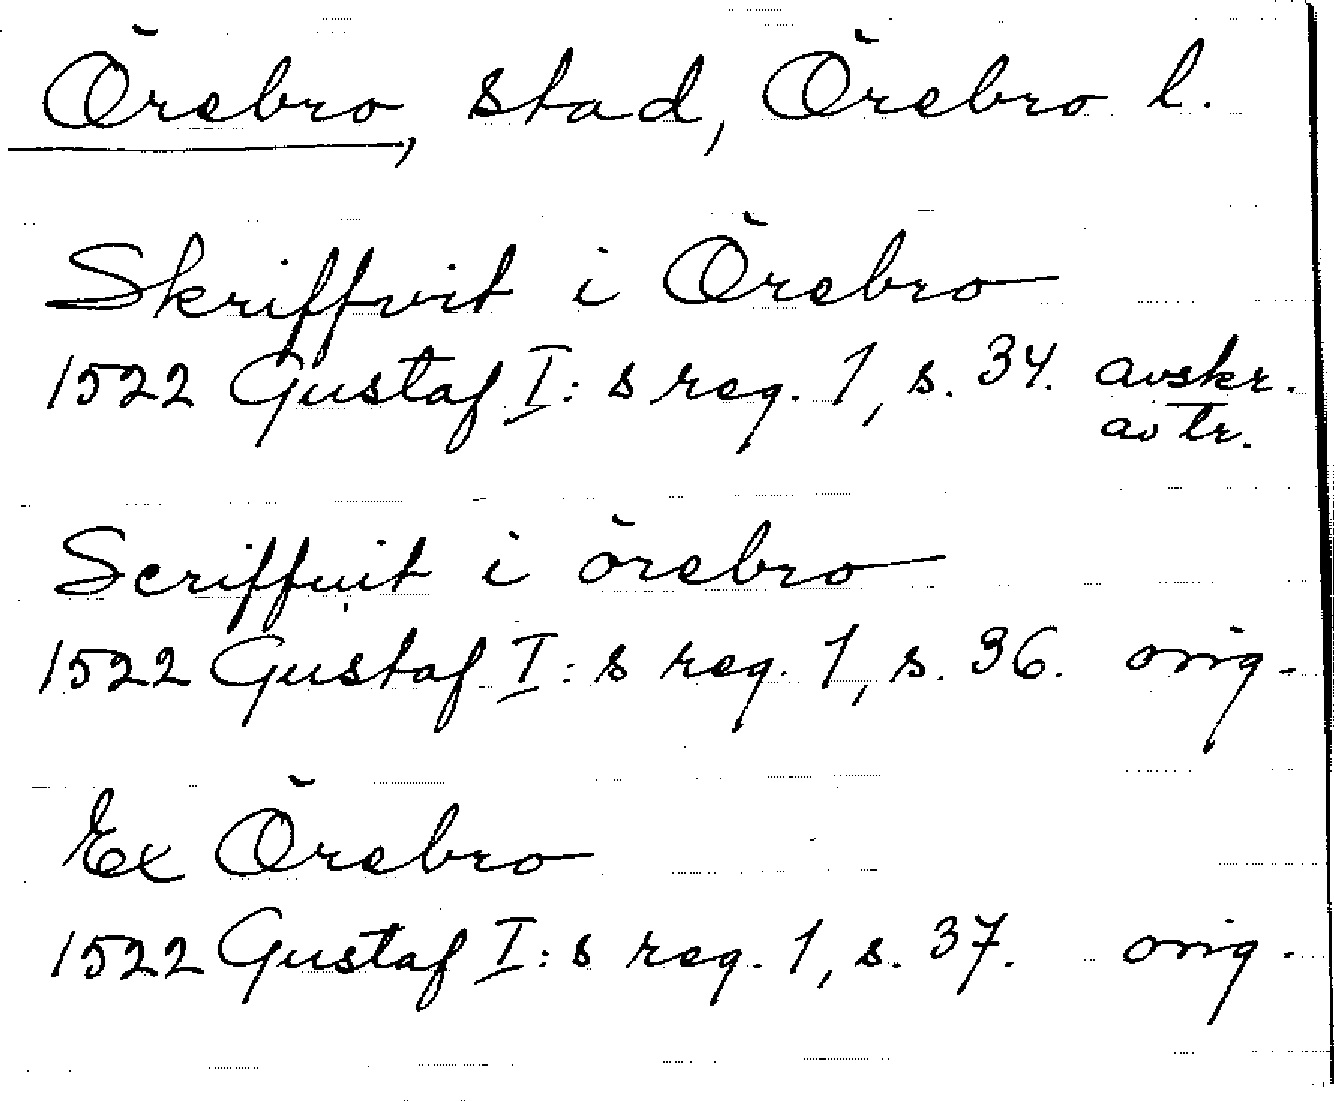 Örebro, stad, Örebro l.
Skriffvit i Örebro
1522 Gustaf I:s reg. 1, s. 34. avskr.
av tr.
Scriffuit i örebro
1522 Gustaf I:s reg. 1, s. 36. orig.
Ex Örebro
1522 Gustaf I:s reg. 1, s. 37. orig.